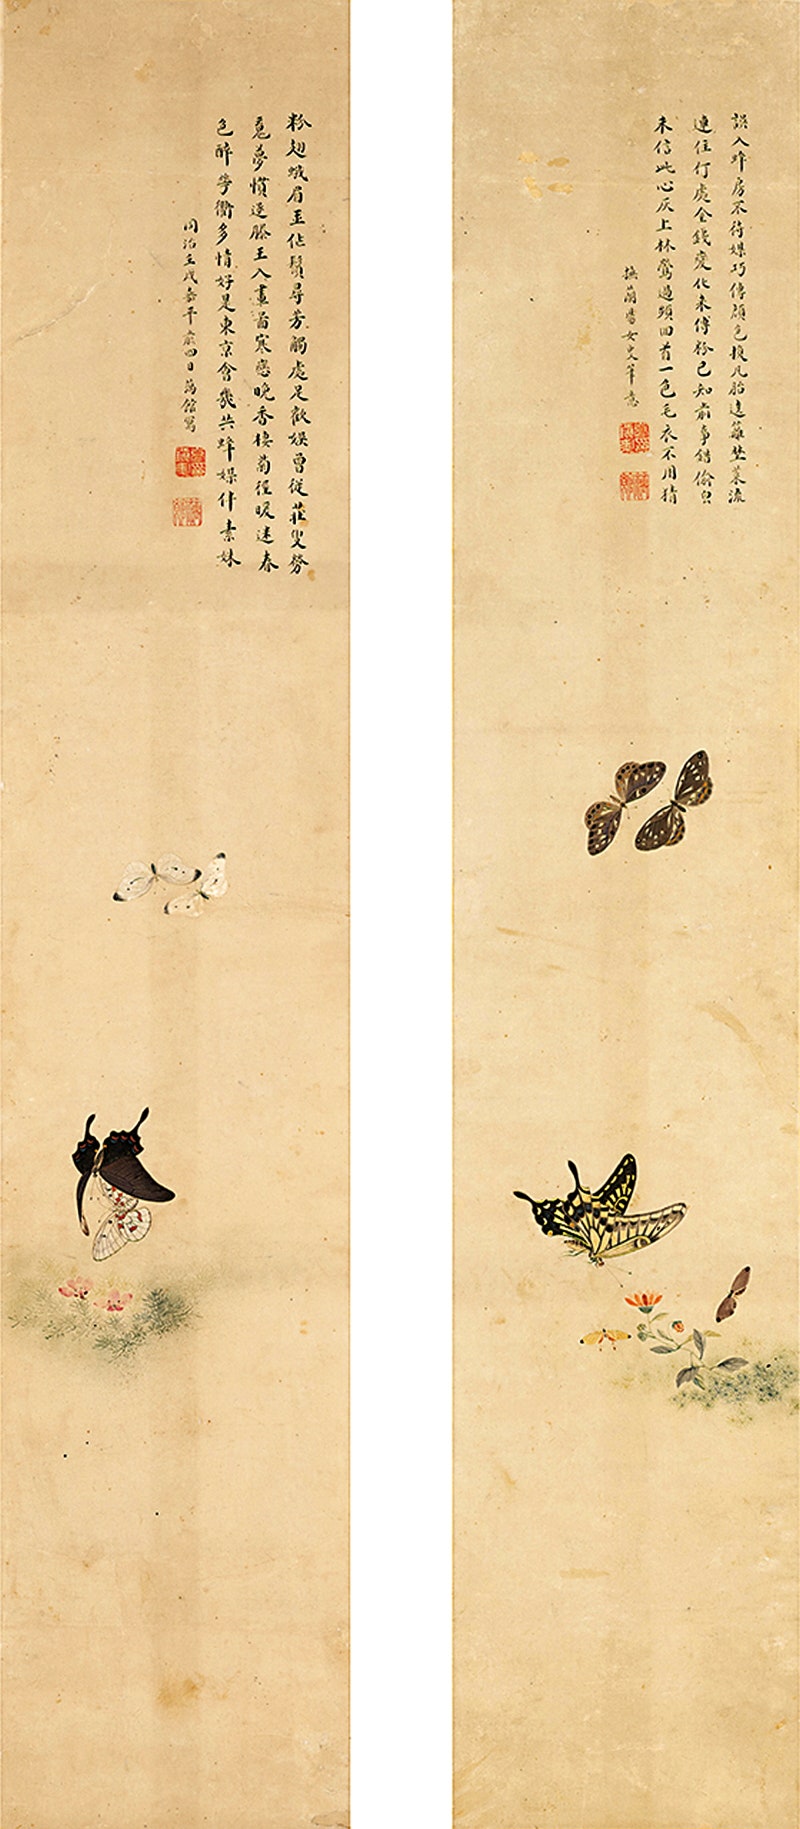 誤入蜂房不待媒巧傳顏色換凡胎遠籬墊菜流
連住何處金錢變化來傅粉已知前事錯偷香
未信此心灰上林鶯過頭回首一色毛衣不用猜
撫蘭 女史筆意
粉翅蛾眉玉作鬚尋芳觸處足歡娛曾從莊叟勞
覓夢慣逐滕王入畫圖寒戀晚香棲菊徑暖迷春
色醉 衢多情好是東京會幾共蜂媒伴素姝
同治壬戌嘉平前四日 館寫